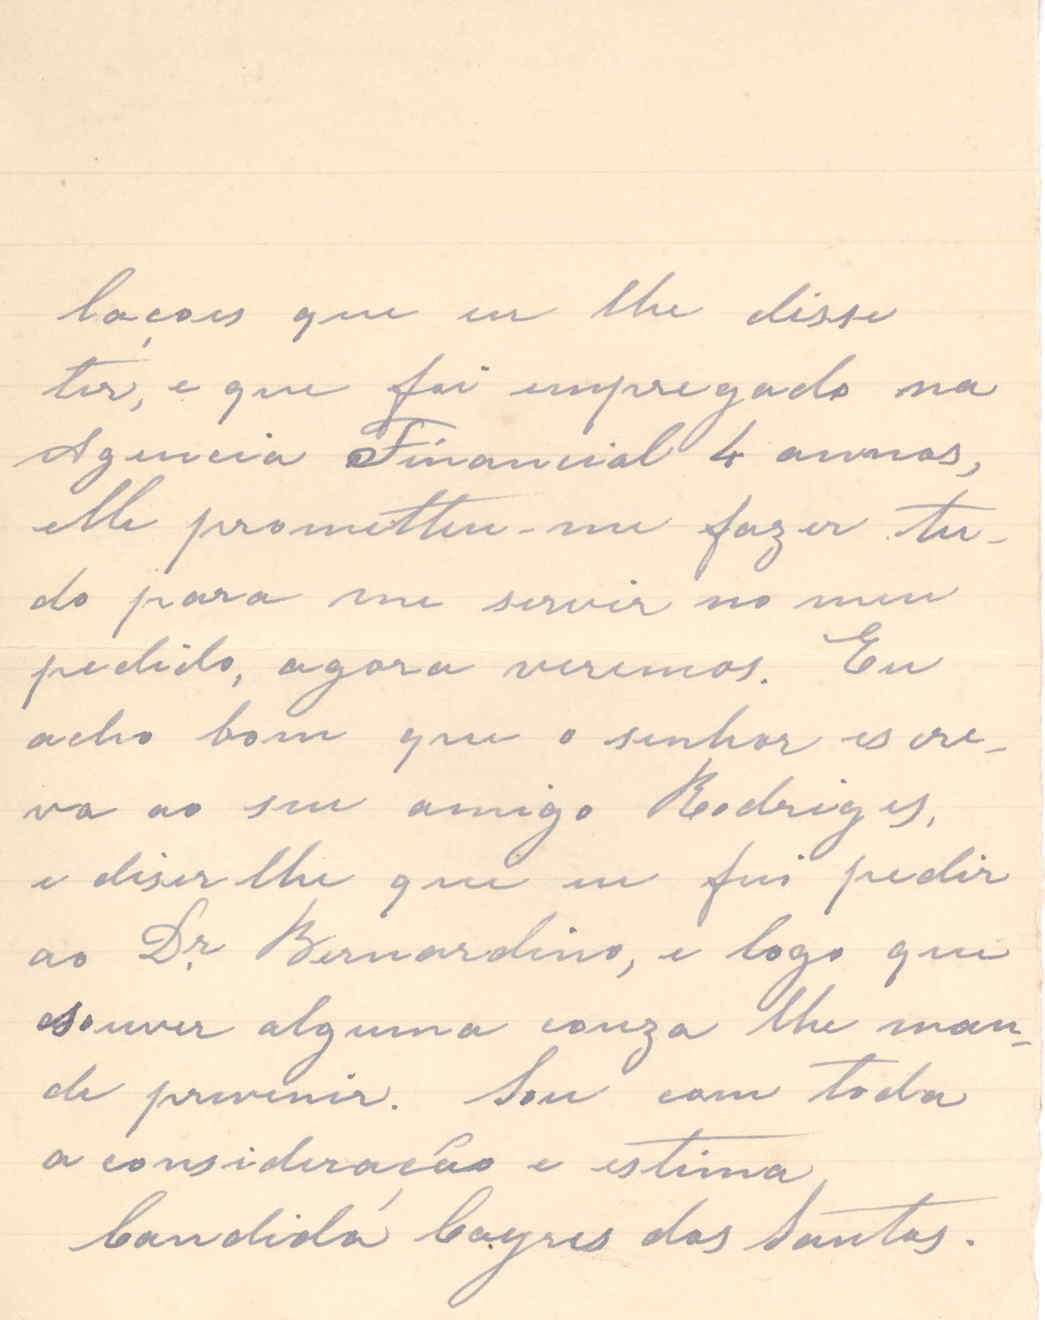 laçoes que eu lhe disse
ter, e que foi empregado na
Agencia Financial 4 annos,
elle prometteu-me fazer tu-
do para me servir no meu
pedido, agora veremos. Eu
acho bom que o senhor escre-
va ao seu amigo Rodriges,
e diser lhe que eu fui pedir
ao Dr. Bernardino, e logo que
souver alguma couza lhe man-
de prevenir. Sou com toda
a consideração e estima,
Candida Cayres dos Santos.